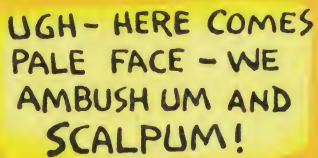 UGH - HERE COMES
PALE FACE - WE
AMBUSH UM AND
SCALPUM!